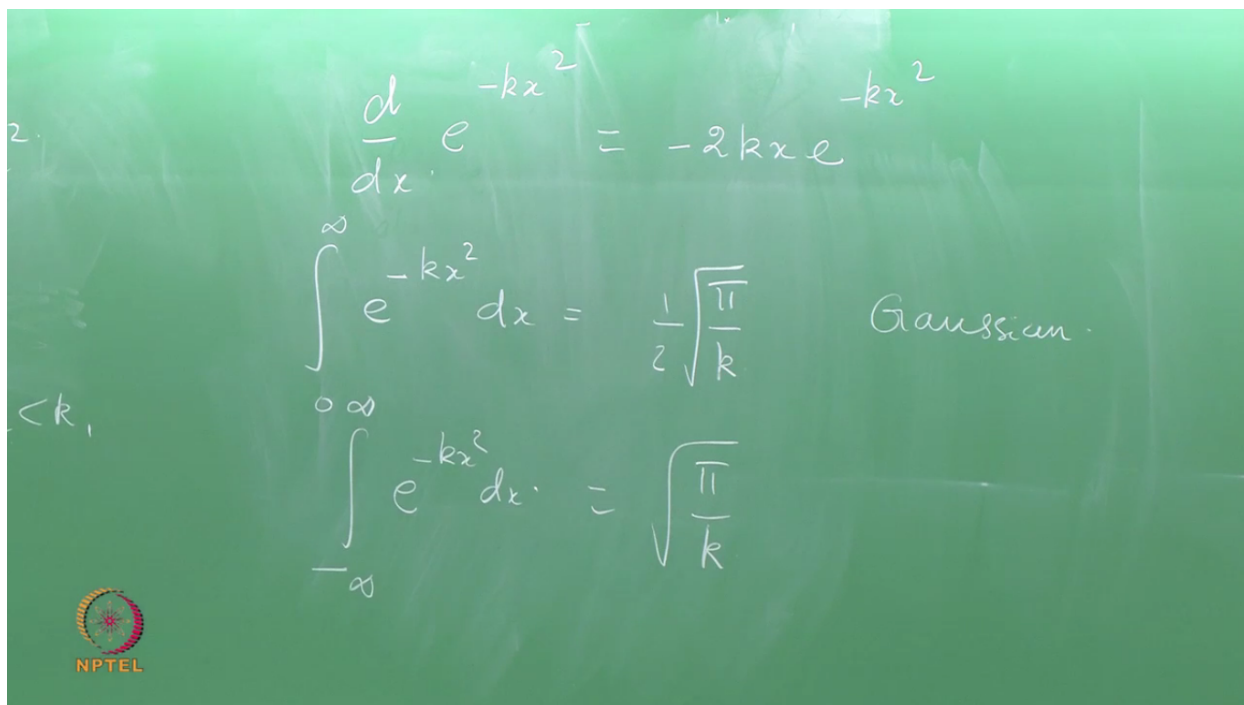 2.
d/dx e^{-kx^2} = -2kx e^{-kx^2}
∫_0^∞ e^{-kx^2} dx = 1/2 √(π/k) Gaussian.
<k,
∫_{-∞}^∞ e^{-kx^2} dx. = √(π/k)
NPTEL